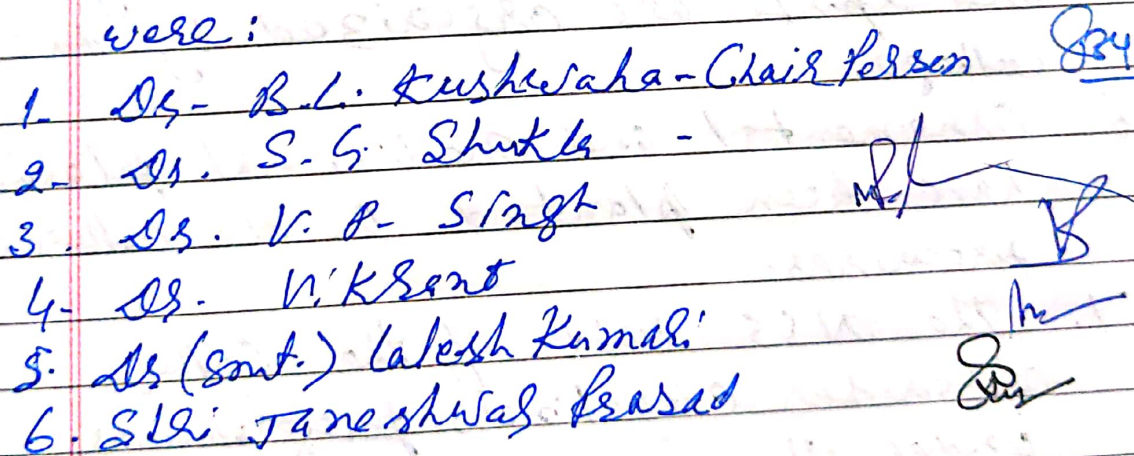 were:
1- Dr- B.L. Kushwaha - Chair Person
2- Dr. S.G. Shukla -
3. Dr. V.P- Singh
4- Dr. Vikrant
5. Dr (Smt.) Latesh Kumari
6. Shri Janeshwar Prasad